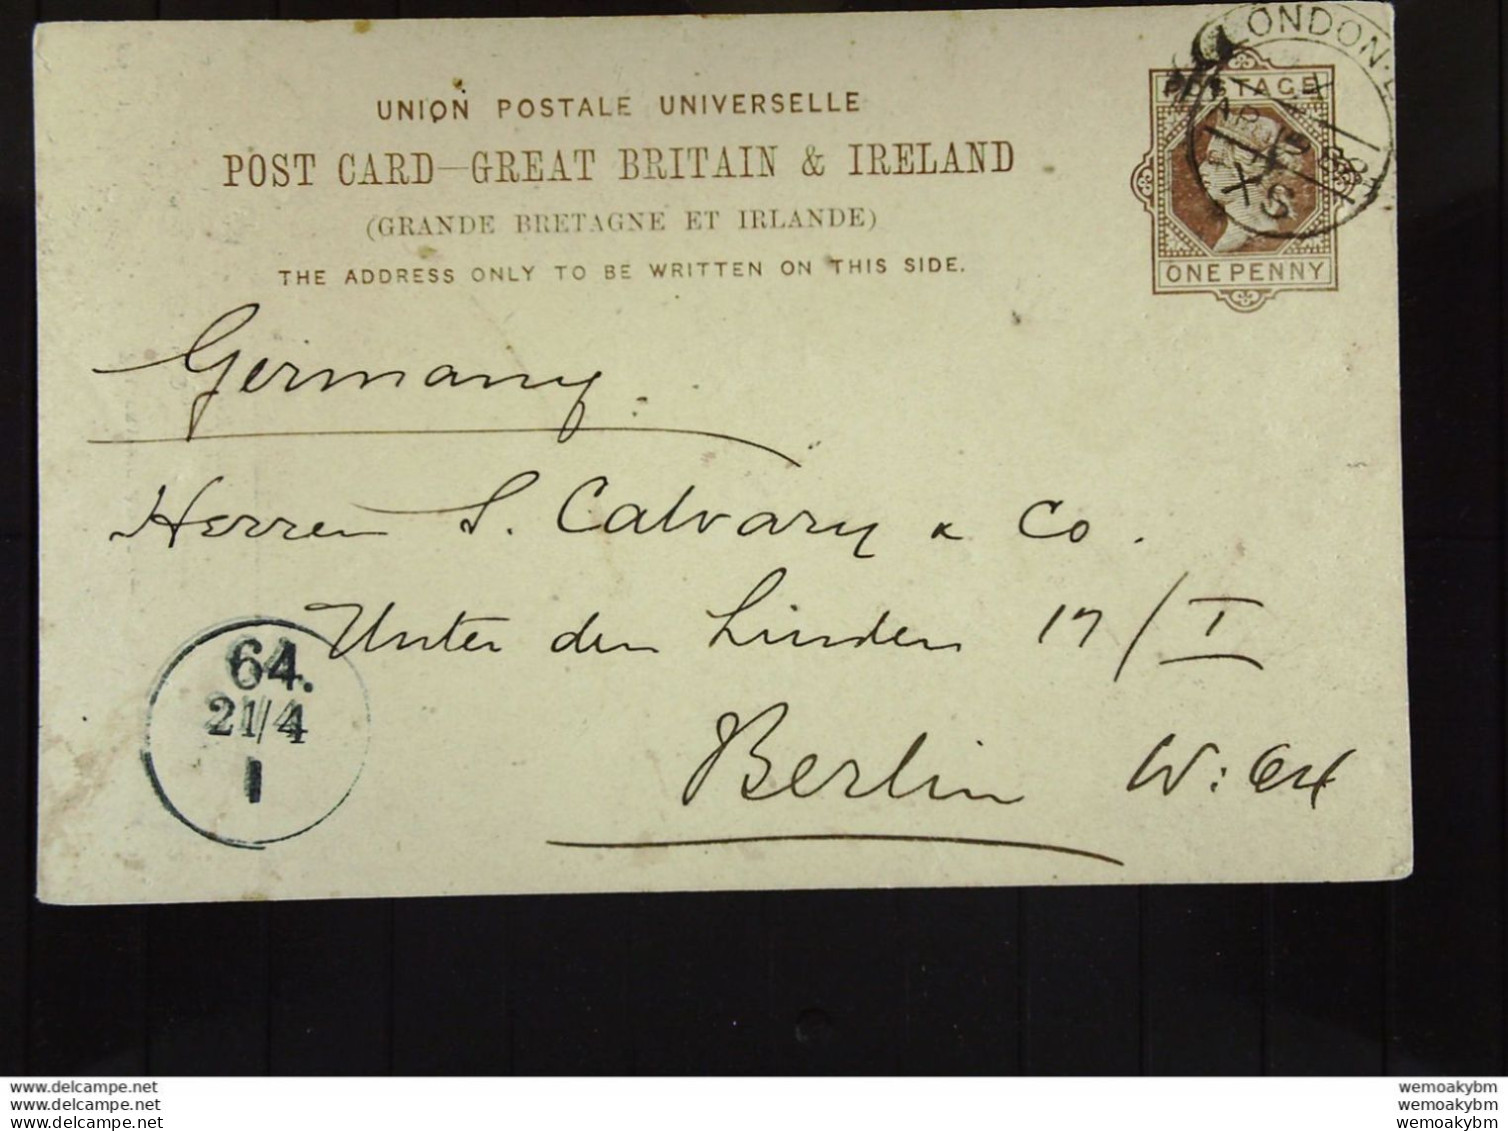 LONDON·E
AP 19 88
XS
UNION POSTALE UNIVERSELLE
POSTAGE
POST CARD—GREAT BRITAIN & IRELAND
(GRANDE BRETAGNE ET IRLANDE)
THE ADDRESS ONLY TO BE WRITTEN ON THIS SIDE.
ONE PENNY
Germany
Herren S. Calvary & Co.
Unter den Linden 17/I
64.
21/4
1
Berlin W: 64
www.delcampe.net
www.delcampe.net
www.delcampe.net
wemoakybm
wemoakybm
wemoakybm